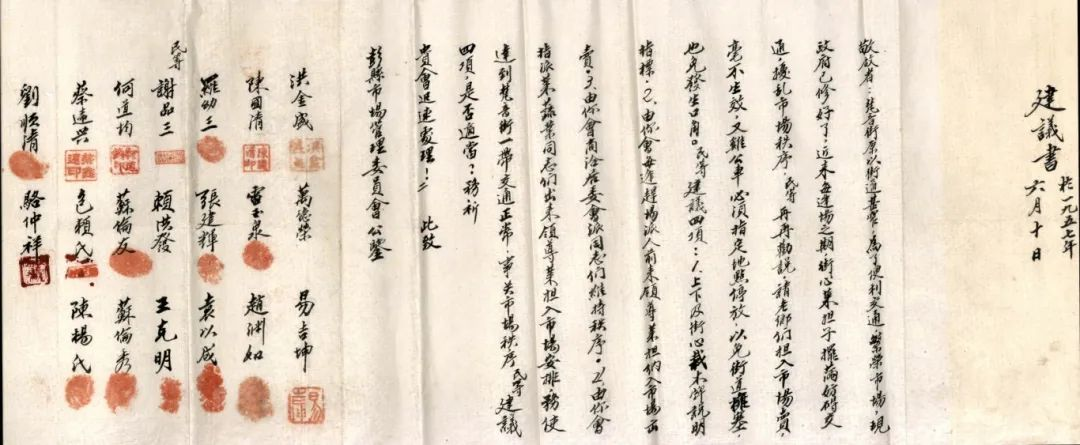 建議書
於一九五七年
六月十日
敬啟者：梵音街原以街道甚窄，為了便利交通、繁榮市場，現
政府已修好了；近來每逢場之期，街心菜担子擺滿，妨碍交
通，擾乱市場秩序，民等再再勸說，請老鄉們担入市場賣，
毫不生效，又雞公車必須指定地點停放，以免街道擁塞，
也免發生口角。民等建議四項：1.上下及街心栽木牌說明
指標。2.由你會每逢趕場派人前來領導菜担們入市場出
賣。3.由你會商洽居委會派同志們維持秩序。4.由你會
指派菜蔬業同志們出來領導菜担入市場安排，務使
達到梵音街一帶交通正常，事关市場秩序，民等建議
四項，是否適當？務祈
貴會迅速處理！ 此致
彭縣市場管理委員會公鑒
洪金盛 萬德榮 易吉坤
陳國清 雷玉泉 趙渊如
羅幼三 張建輝 袁以成
民等 謝品三 賴洪發 王克明
何道均 蘇倫友 蘇倫秀
蔡遠兴 色賴氏 陳楊氏
劉順清 駱仲祥